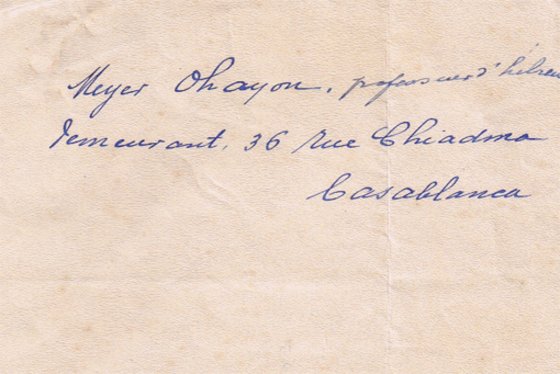 Meyer Ohayon, professeur d'hébreu
demeurant, 36 rue Chiadma
Casablanca